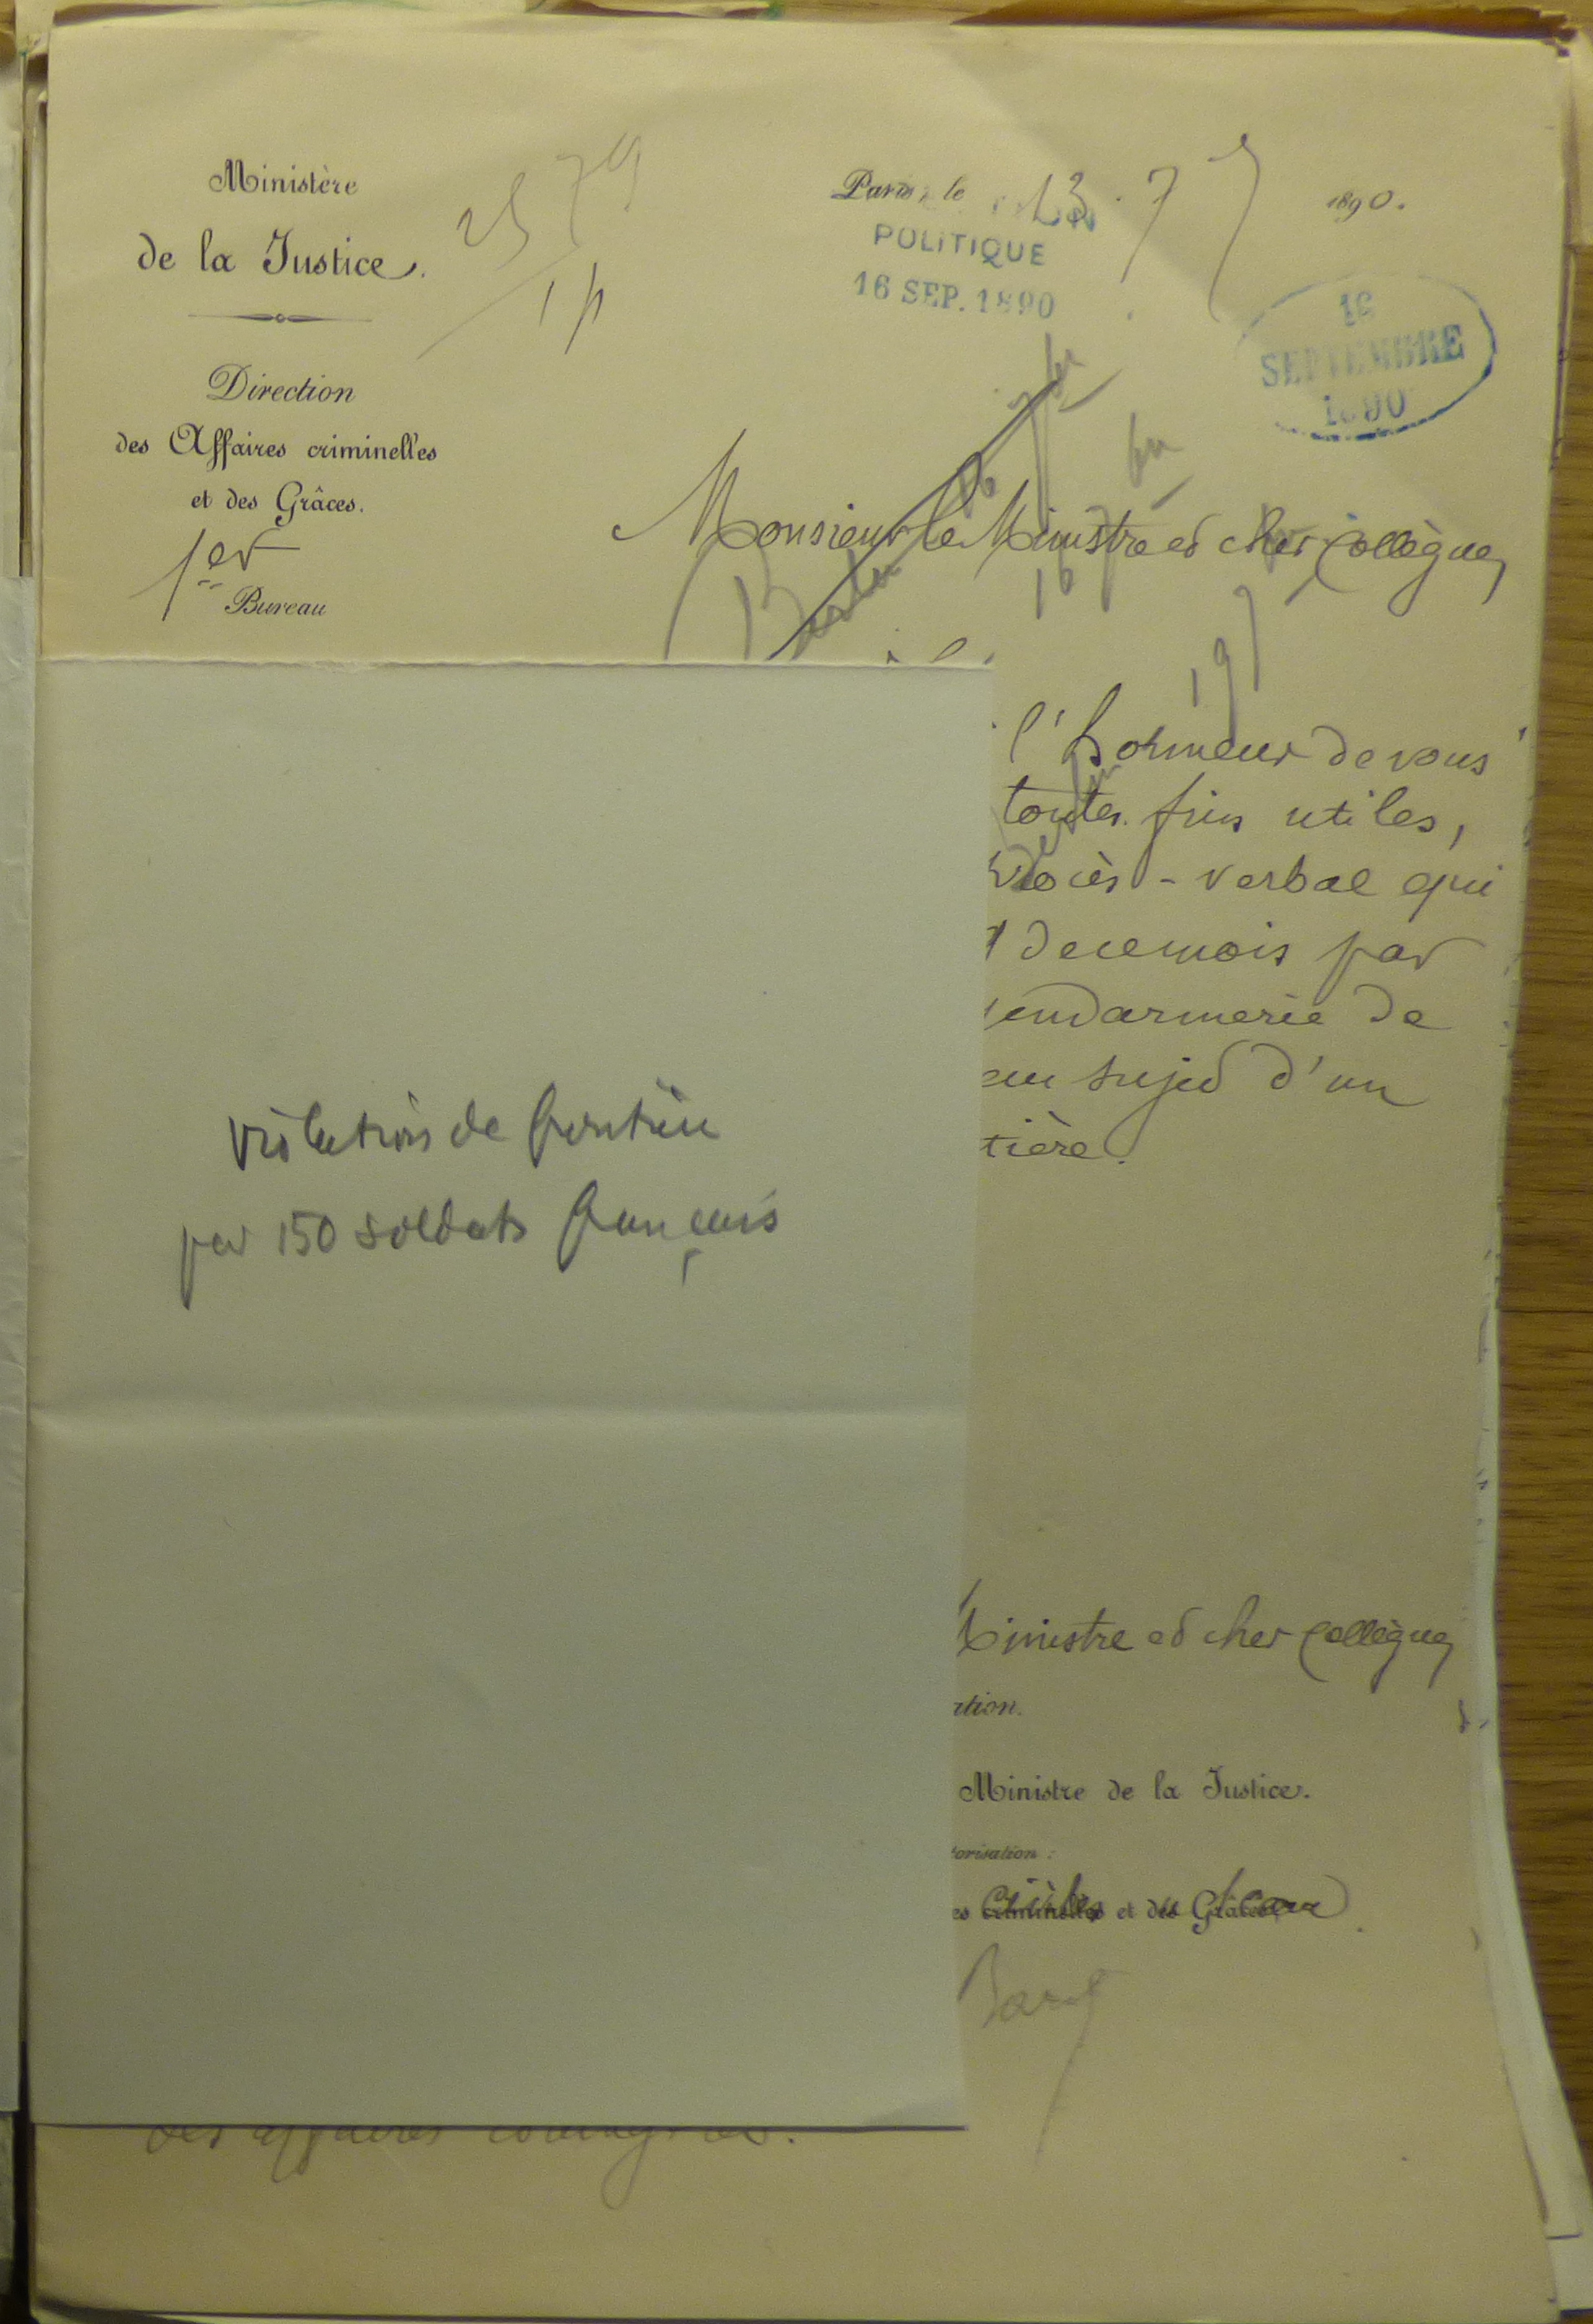 Ministère
de la Justice.
Direction
des Affaires criminelles
et des Grâces.
1er
Bureau
Paris, le 13. 7 1890.
POLITIQUE
16 SEP. 1890
16
SEPTEMBRE
1890
Monsieur le Ministre et cher Collègue,
l'honneur de vous
toutes fins utiles,
procès-verbal qui
de ce mois par
endarmerie de
au sujet d'un
tière.
violation de frontière
par 150 soldats français
Ministre et cher Collègue,
ation.
Ministre de la Justice.
orisation :
es criminelles et des Grâces
des affaires étrangères.